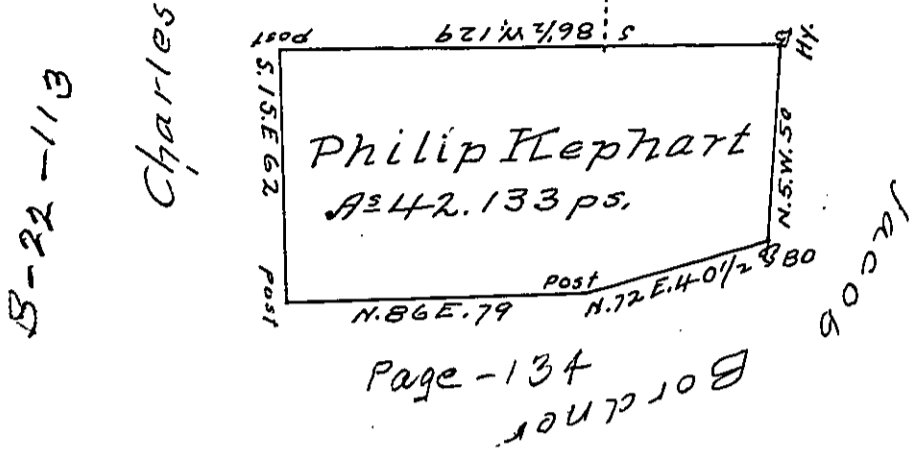 B-22-113
Charles
Post
S 86½ W. 129
HY.
S. 15. E 62
Philip Kephart
Aˢ 42. 133 ps.
N. 5. W. 50
Post
N. 86 E. 79
Post
N. 72 E. 40½
BO
Jacob
Bordner
Page - 134